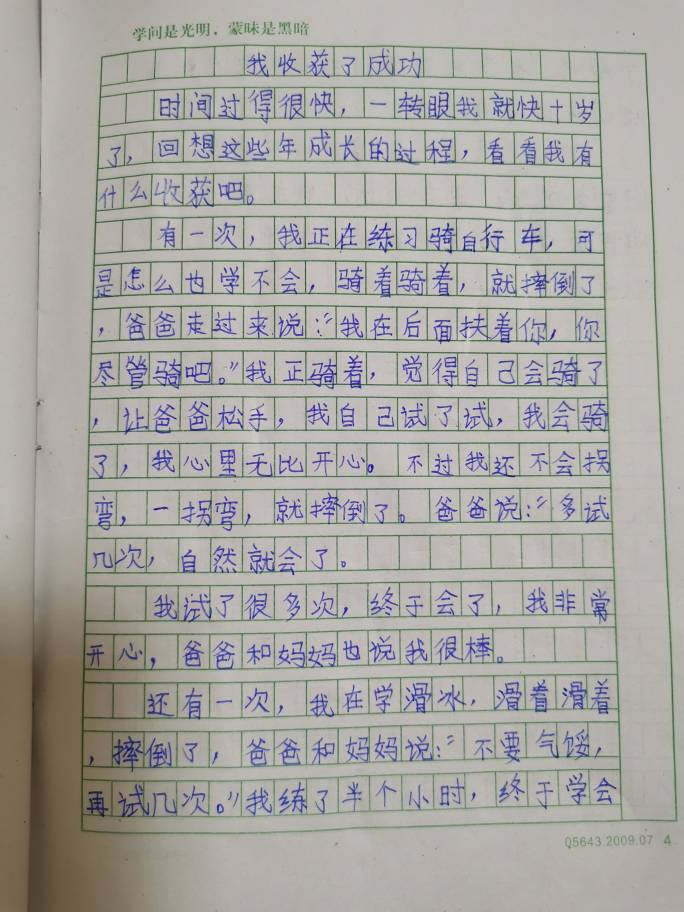 学问是光明，蒙昧是黑暗
我收获了成功
时间过得很快，一转眼我就快十岁
了，回想这些年成长的过程，看看我有
什么收获吧。
有一次，我正在练习骑自行车，可
是怎么也学不会，骑着骑着，就摔倒了
，爸爸走过来说：“我在后面扶着你，你
尽管骑吧。”我正骑着，觉得自己会骑了
，让爸爸松手，我自己试了试，我会骑
了，我心里无比开心。不过我还不会拐
弯，一拐弯，就摔倒了。爸爸说：“多试
几次，自然就会了。
我试了很多次，终于会了，我非常
开心，爸爸和妈妈也说我很棒。
还有一次，我在学滑冰，滑着滑着
，摔倒了，爸爸和妈妈说：“不要气馁，
再试几次。”我练了半个小时，终于学会
Q5643.2009.07 4